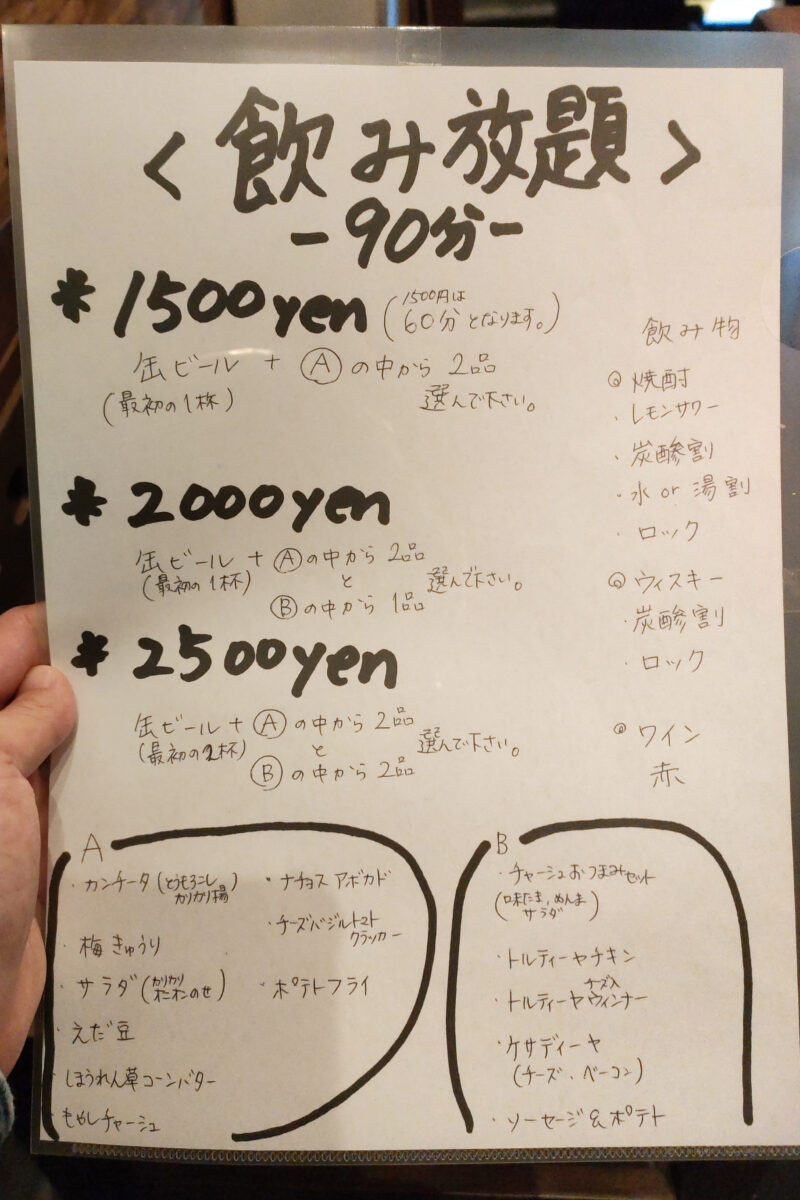 ＜飲み放題＞
-90分-
* 1500yen (1500円は60分となります。)
缶ビール + Ⓐの中から 2品
(最初の1杯) 選んで下さい。
* 2000yen
缶ビール + Ⓐの中から 2品
(最初の1杯) と 選んで下さい。
Ⓑの中から 1品
* 2500yen
缶ビール + Ⓐの中から 2品
(最初の2杯) と 選んで下さい。
Ⓑの中から 2品
飲み物
◎ 焼酎
・レモンサワー
・炭酸割
・水 or 湯割
・ロック
◎ ウィスキー
・炭酸割
・ロック
◎ ワイン
赤
A
・カンチータ (とうもろこし
カリカリ揚)
・梅きゅうり
・サラダ (カリカリ
オニオンのせ)
・えだ豆
・ほうれん草コーンバター
・もやしチャーシュ
・ナチョス アボカド
・チーズバジルトマト
クラッカー
・ポテトフライ
B
・チャーシュおつまみセット
(味たま、めんま
サラダ)
・トルティーヤチキン
・トルティーヤ チーズ入ウィンナー
・ケサディーヤ
(チーズ、ベーコン)
・ソーセージ&ポテト